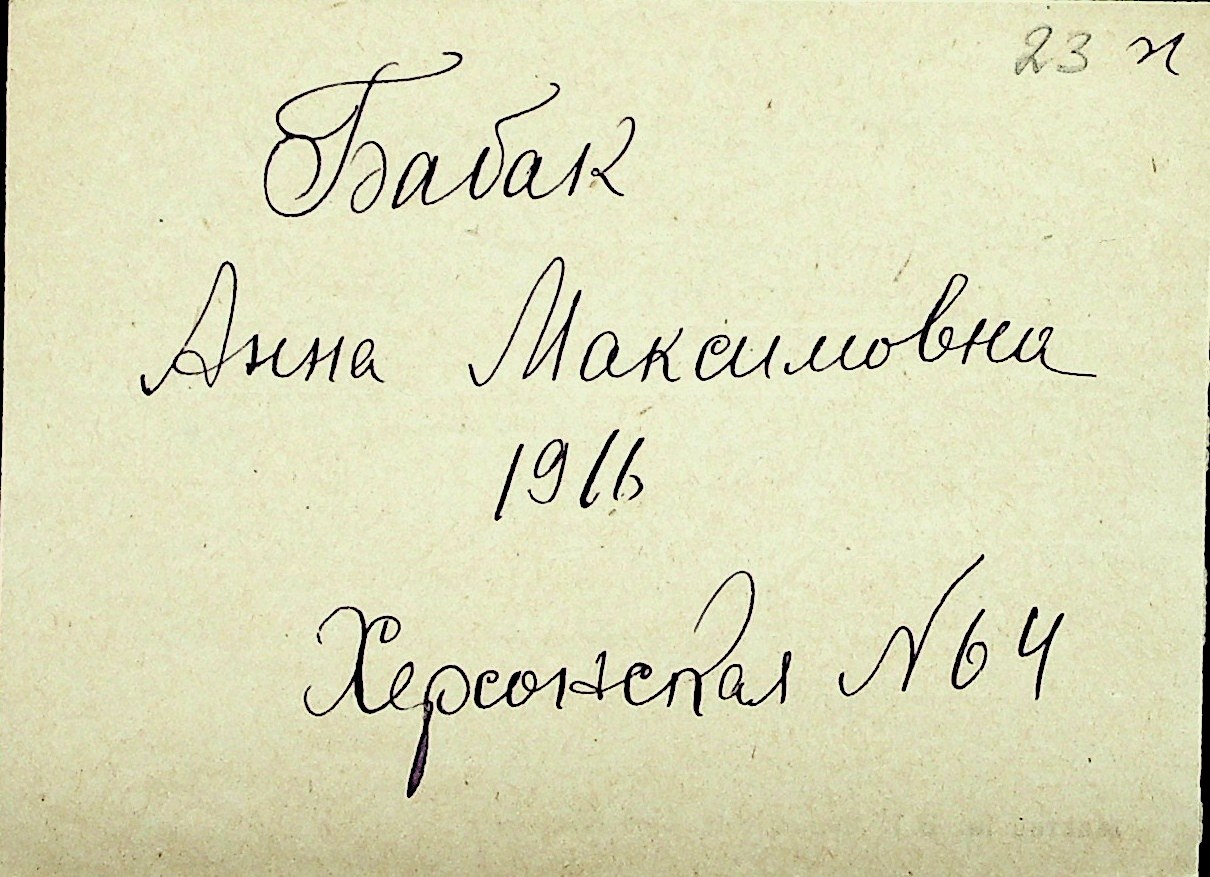 23 н
Бабак
Анна Максимовна
1916
Херсонская №64